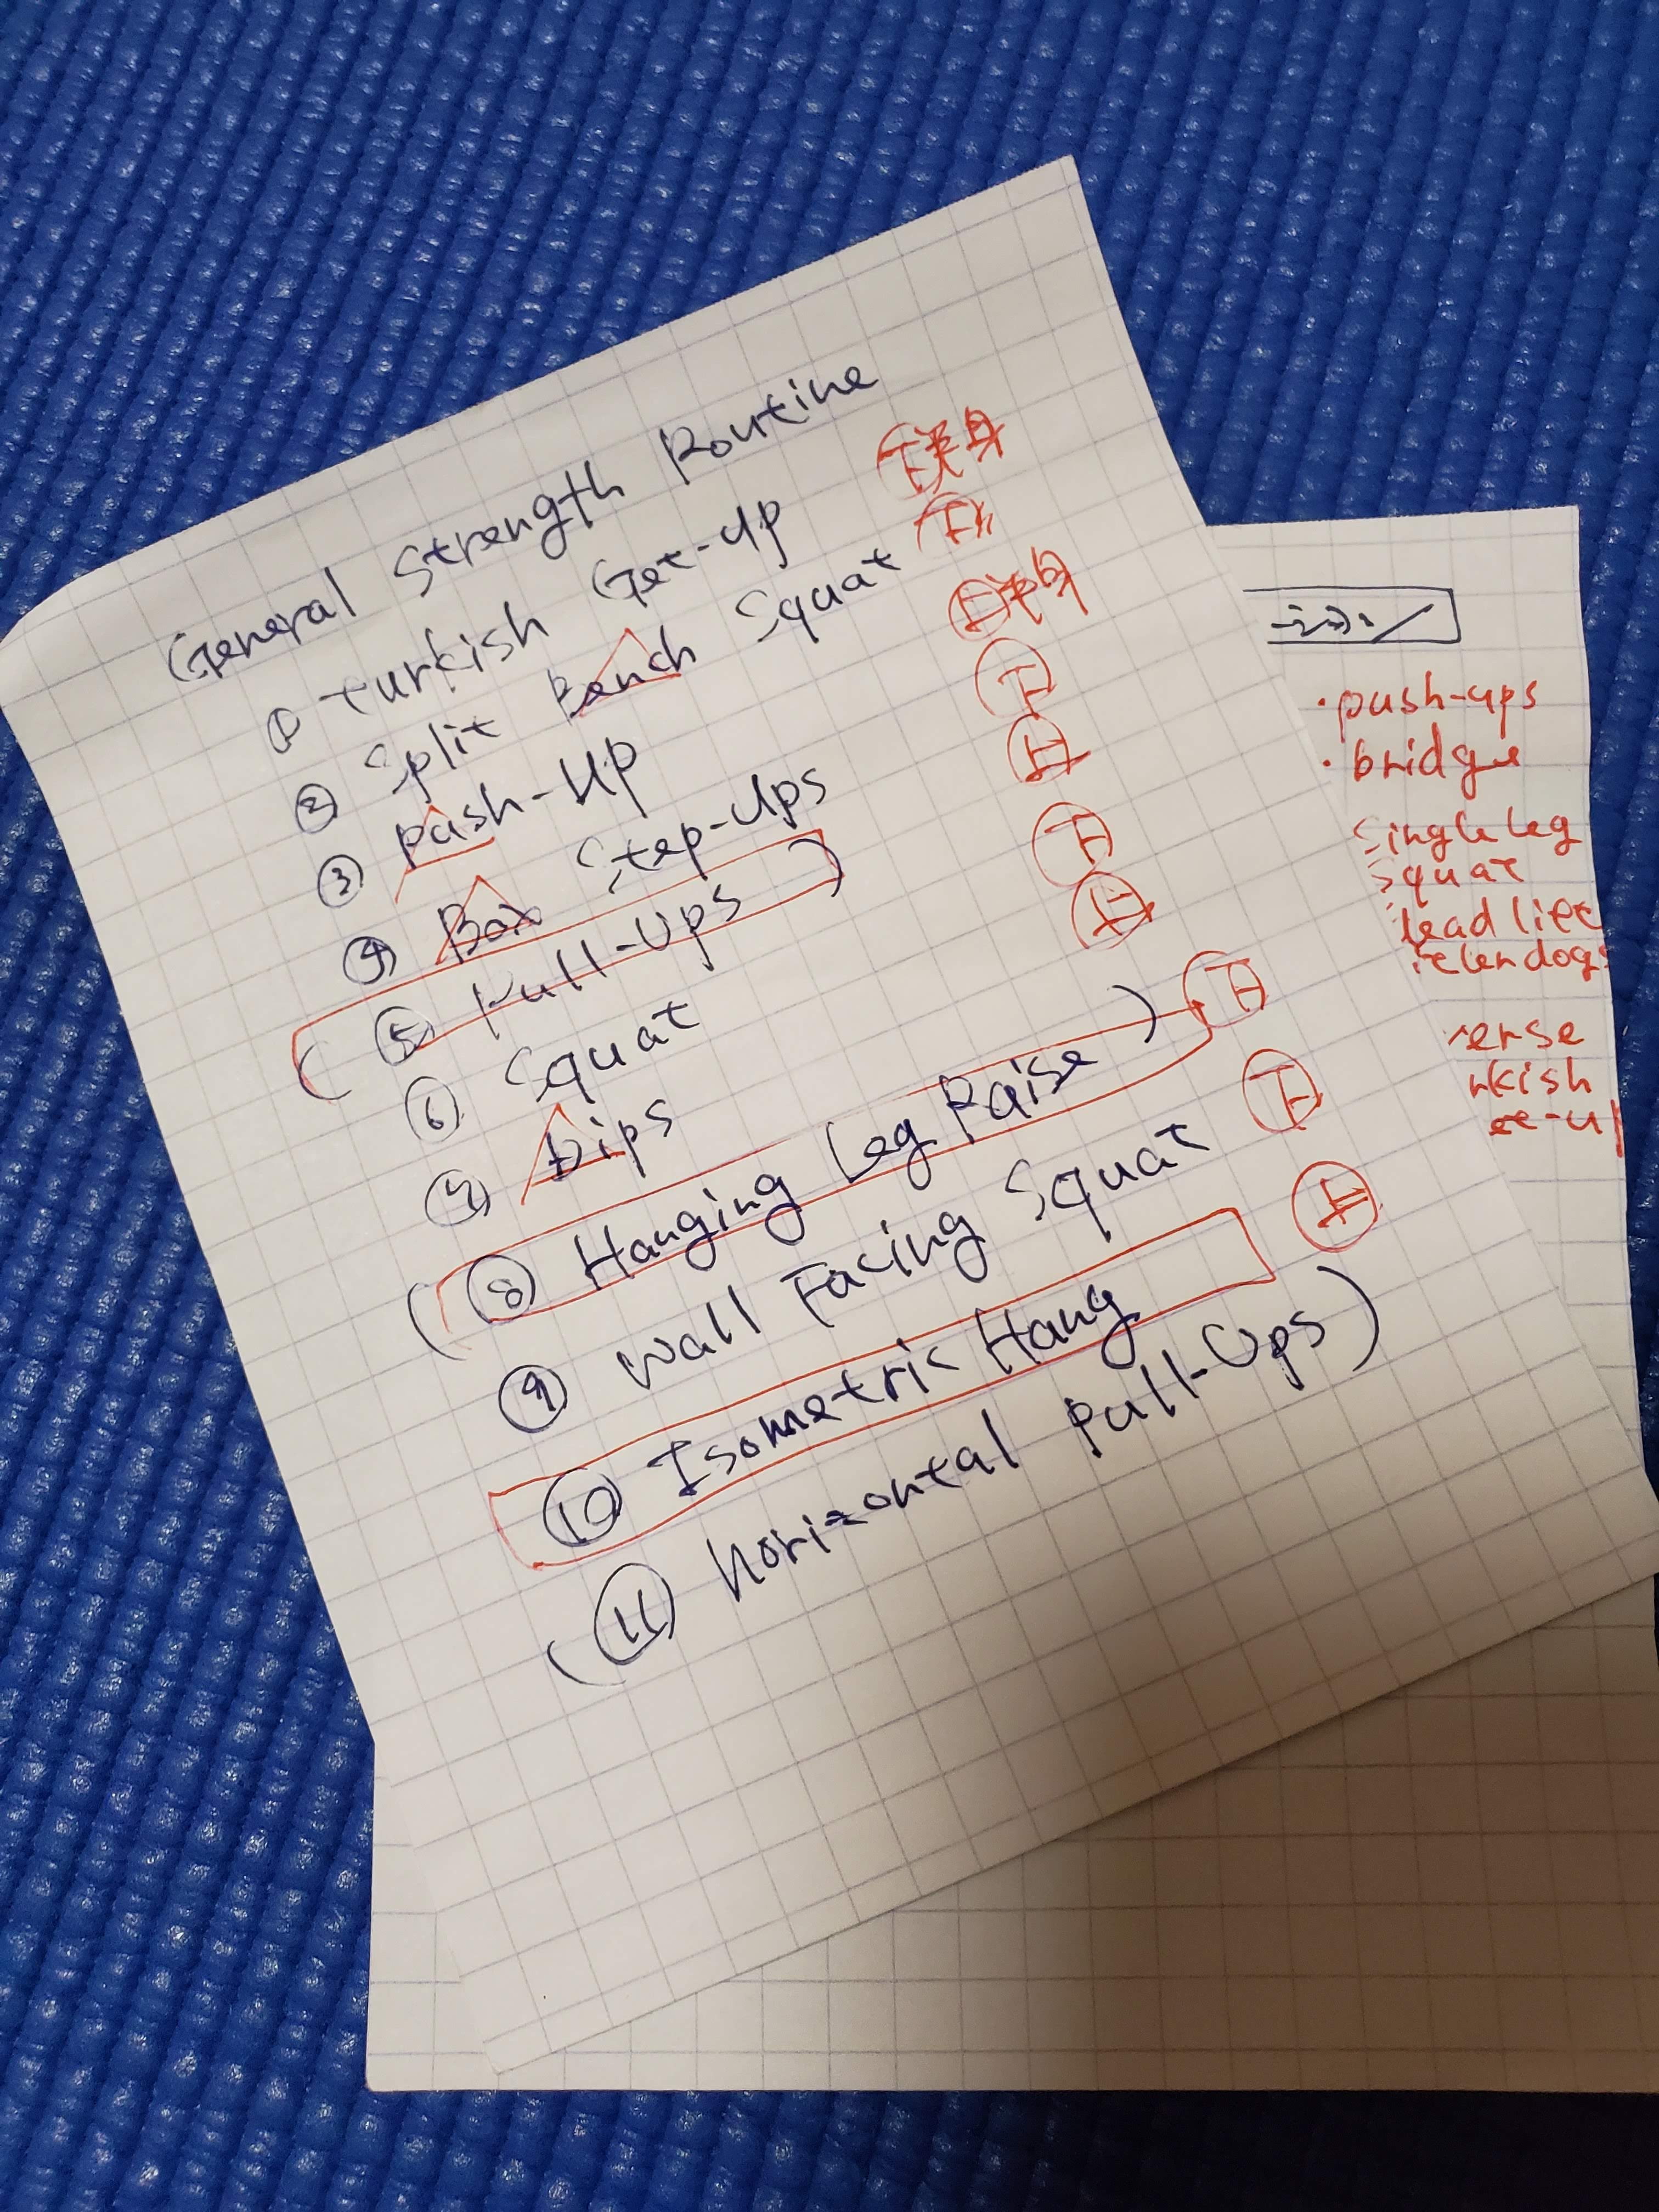 General Strength Routine
① Turkish Get-Up
② Split Bench Squat 下
③ Push-Up 上
④ Box Step-Ups 下
(⑤ Pull-Ups) 上
⑥ Squat 下
⑦ Dips 上
(⑧ Hanging Leg Raise) 下
⑨ Wall Facing Squat 下
⑩ Isometric Hang 上
(⑪ Horizontal Pull-Ups)
・push-ups
・bridge
single leg
squat
lead lift
dogs
erse
rkish
et-up